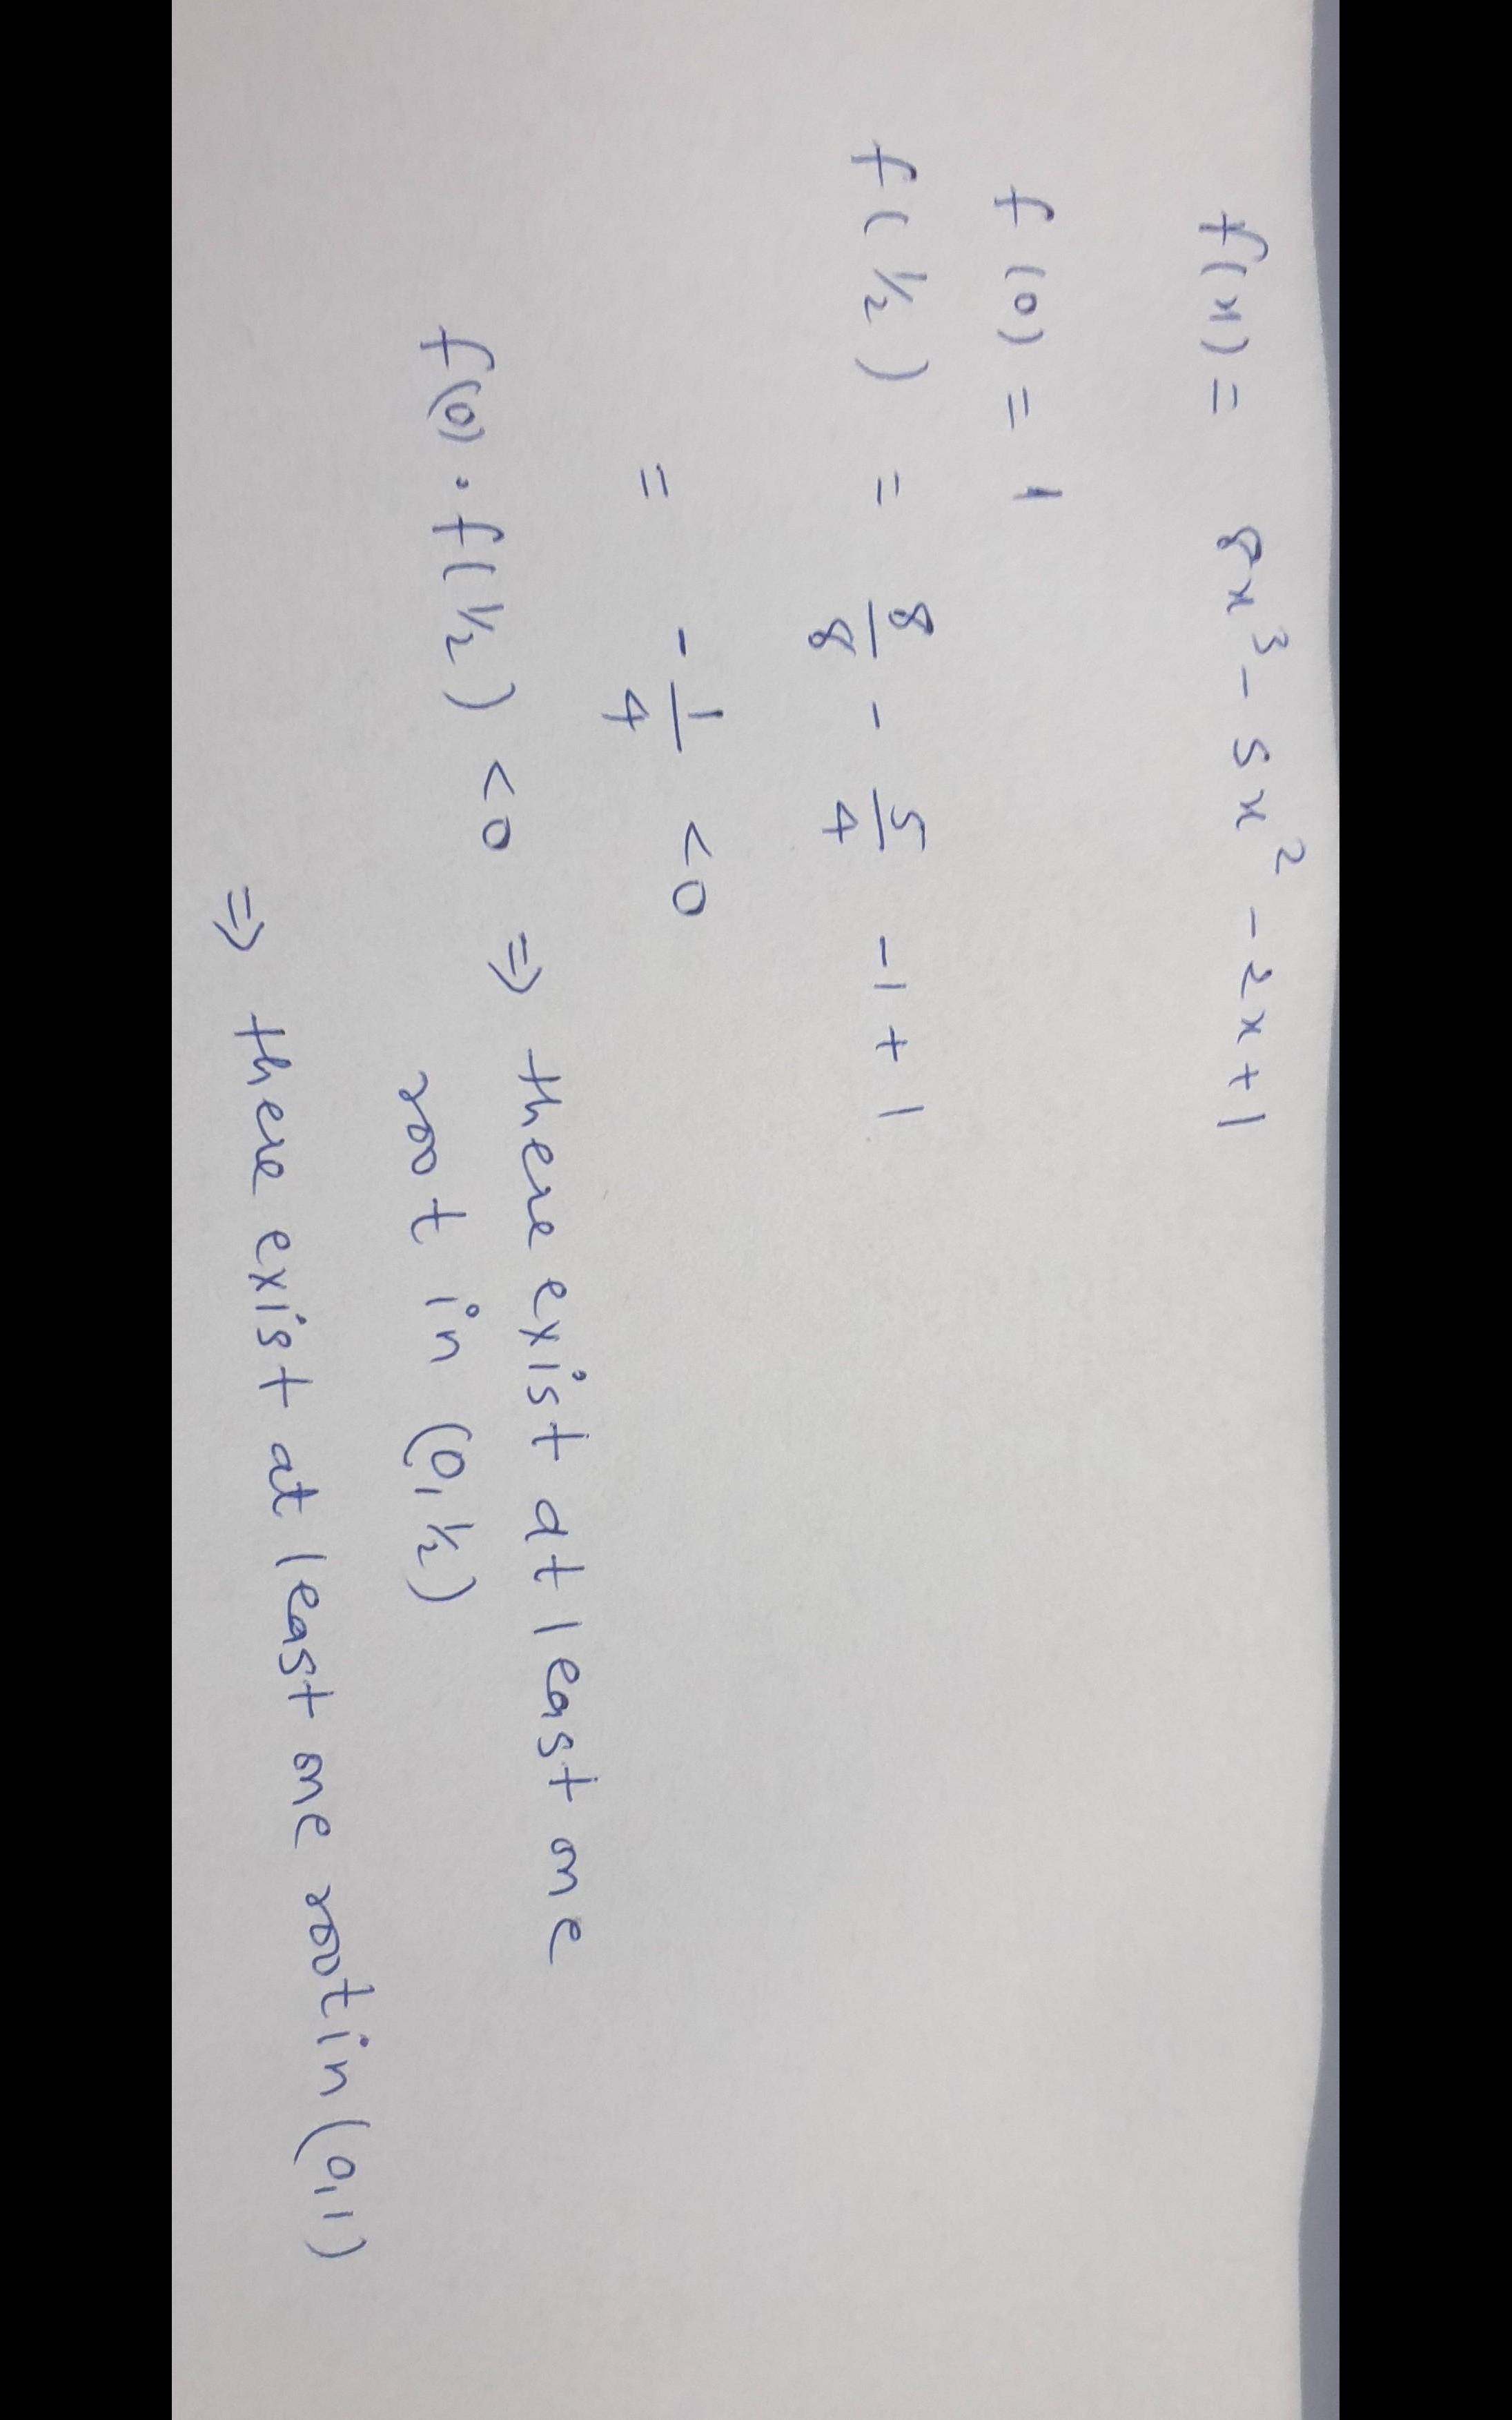 f(x) = 8x³ - 5x² - 2x + 1
f(0) = 1
f(1/2) = 8/8 - 5/4 - 1 + 1
= - 1/4 < 0
f(0) · f(1/2) < 0 ⇒ there exist at least one
root in (0, 1/2)
⇒ there exist at least one root in (0,1)